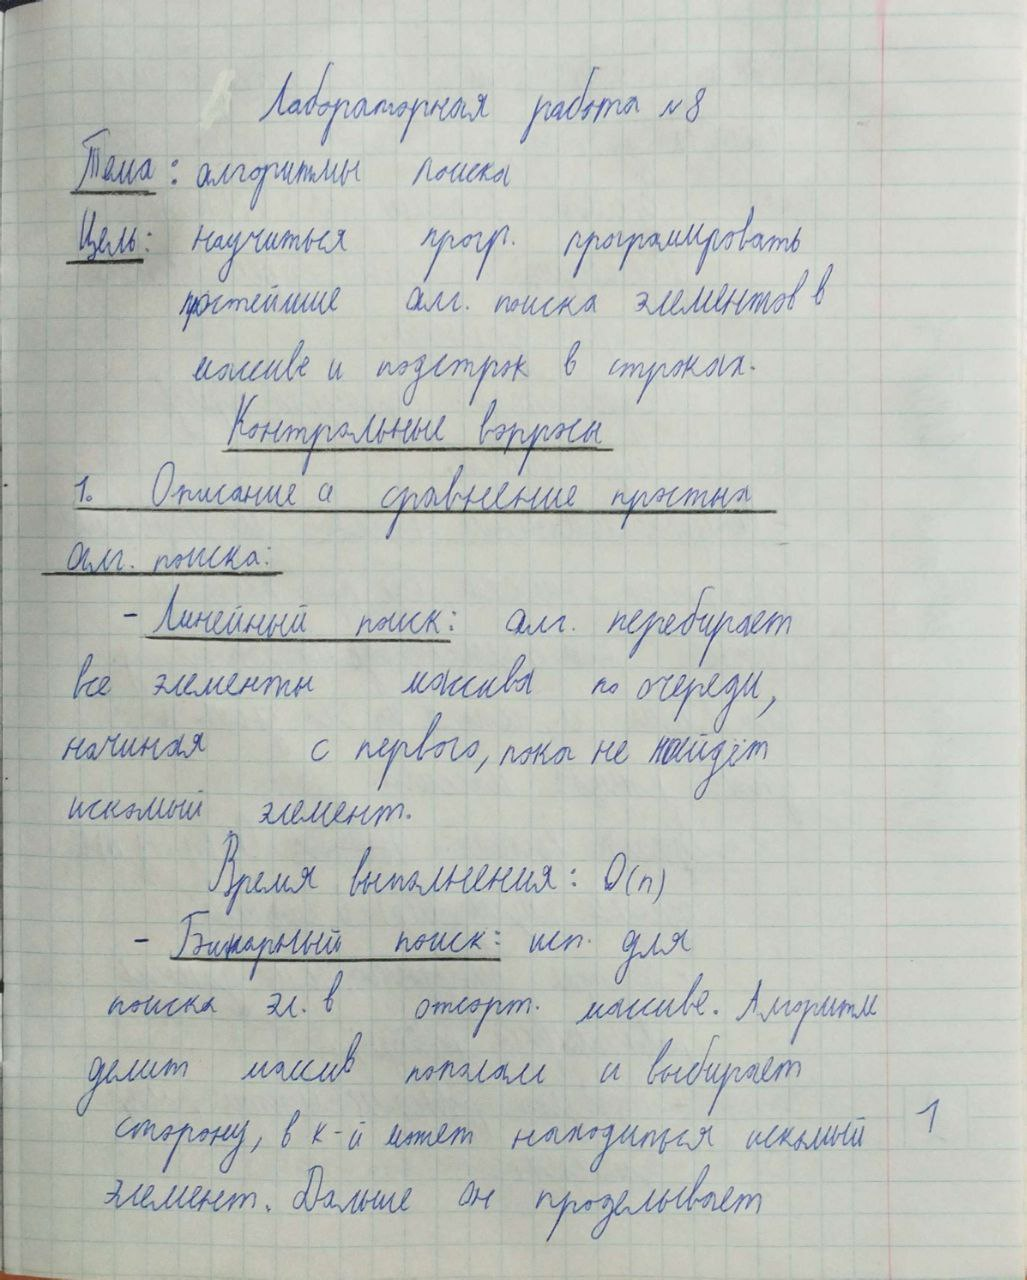 Лабораторная работа №8
Тема: алгоритмы поиска
Цель: научиться прогр. програмировать
простейшие алг. поиска элементов в
массиве и подстрок в строках.
Контрольные вопросы
1. Описание и сравнение простых
алг. поиска:
- Линейный поиск: алг. перебирает
все элементы массива по очереди,
начиная с первого, пока не найдёт
искомый элемент.
Время выполнения: O(n)
- Бинарный поиск: исп. для
поиска эл. в отсорт. массиве. Алгоритм
делит массив пополам и выбирает
сторону, в к-й может находиться искомый
элемент. Дальше он проделывает
1